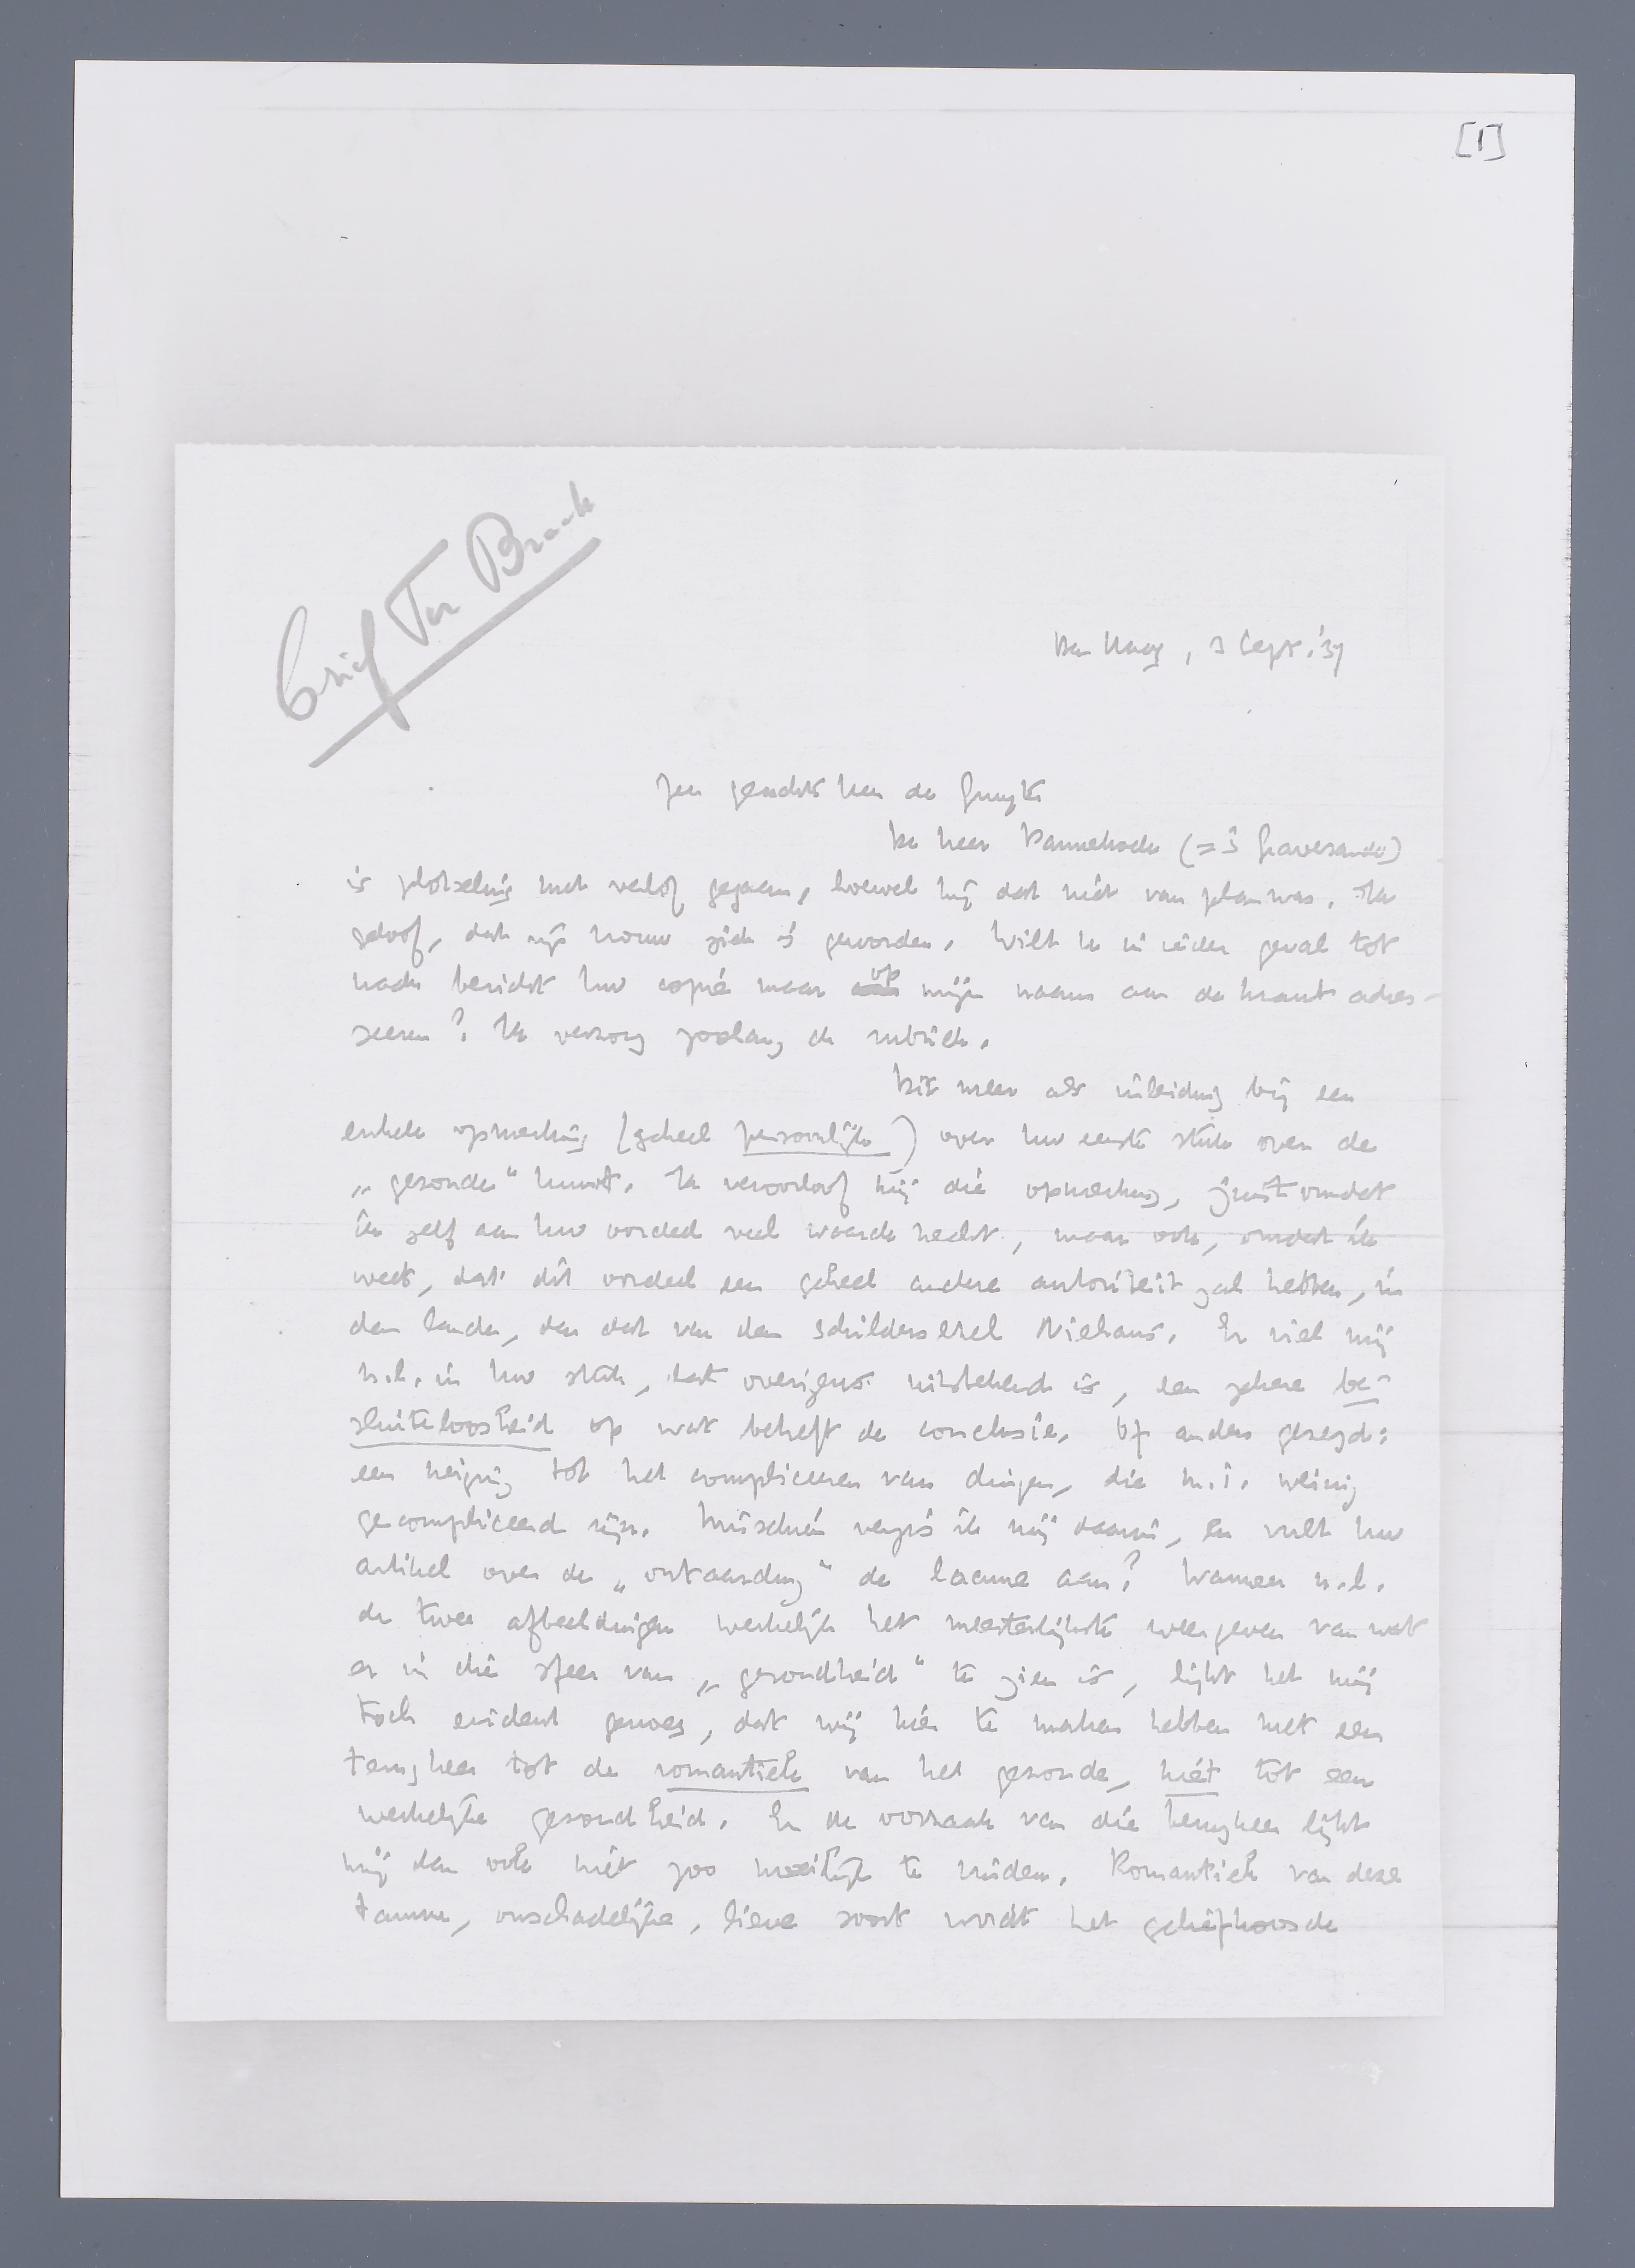 [1]
Brief Ter Braak
Den Haag, 3 Sept. '37
Zeer geachte Heer de Gruyter
De heer Pannekoek (= 's Gravesande)
is plotseling met verlof gegaan, hoewel hij dat niet van plan was. Ik
geloof, dat zijn vrouw ziek is geworden. Wilt U in ieder geval tot
nader bericht Uw copie maar op mijn naam aan de krant adres-
seeren? Ik verzorg zoolang de rubriek.
Dit meer als inleiding bij een
enkele opmerking (geheel persoonlijk) over Uw eerste stuk over de
„gezonde" kunst. Ik veroorloof mij die opmerking, juist omdat
ik zelf aan Uw oordeel veel waarde hecht, maar ook, omdat ik
weet, dat dit oordeel een geheel andere autoriteit zal hebben, in
den lande, dan dat van den schildersezel Niehaus. Er viel mij
n.l. in Uw stuk, dat overigens uitstekend is, een zekere be-
sluiteloosheid op wat betreft de conclusie. Of anders gezegd:
een neiging tot het compliceeren van dingen, die m.i. weinig
gecompliceerd zijn. Misschien vergis ik mij daarin, en vult Uw
artikel over de „ontaarding" de lacune aan? Wanneer n.l.
de twee afbeeldingen werkelijk het meesterlijkste weergeven van wat
er in die sfeer van „gezondheid" te zien is, lijkt het mij
toch evident genoeg, dat wij hier te maken hebben met een
terugkeer tot de romantiek van het gezonde, niet tot een
werkelijke gezondheid. En de oorzaak van die terugkeer lijkt
mij dan ook niet zoo moeilijk te vinden. Romantiek van deze
tamme, onschadelijke, lieve soort wordt het geliefkoosde